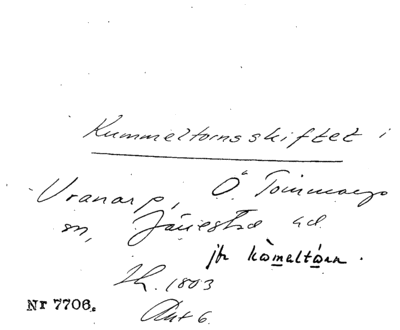 Kummeltornsskiftet i
Vranarp, Ö. Tommarps
sn, Järrestad hd.
jfr kåmeltårn.
1803
Akt 6
Nr 7706.